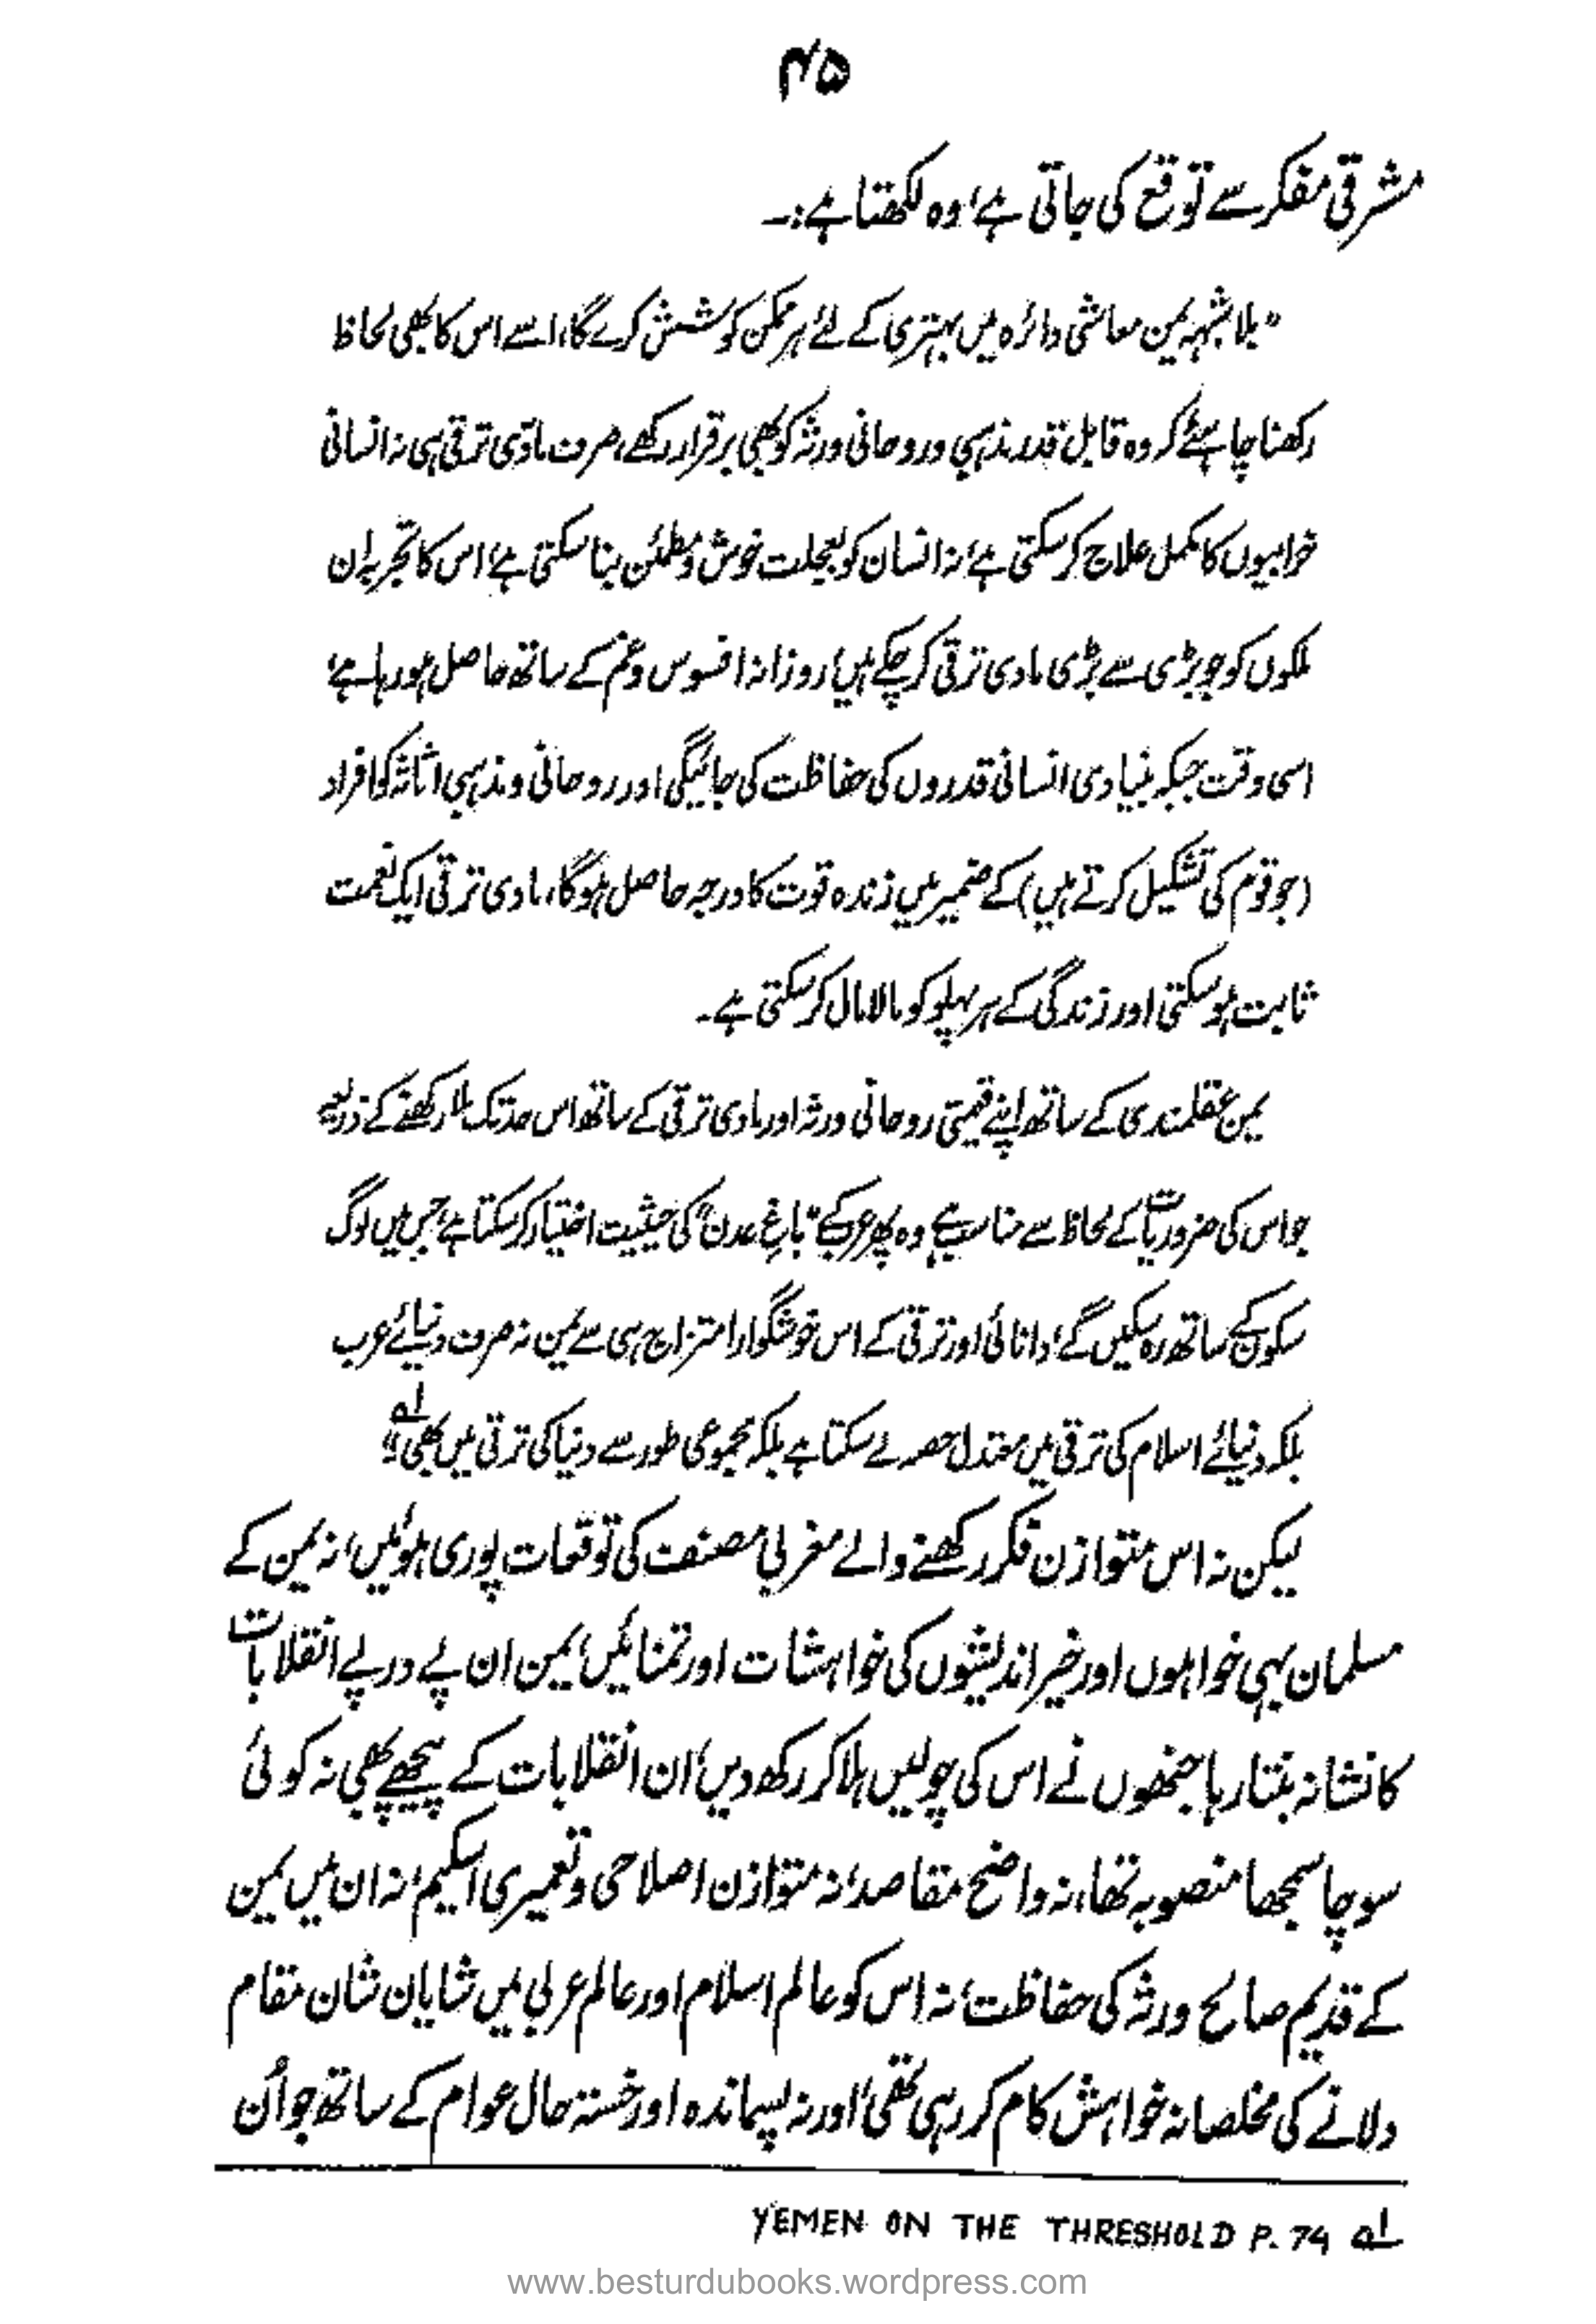 ۴۵
مشرقی مفکر سے توقع کی جاتی ہے، وہ لکھتا ہے:۔
"بلا شبہہ یمن معاشی دائرہ میں بہتری کے لئے ہر ممکن کوشش کرے گا، اسے اس کا بھی لحاظ
رکھنا چاہئے کہ وہ قابل قدر مذہبی و روحانی ورثہ کو بھی برقرار رکھے، صرف مادّی ترقی ہی نہ انسانی
خرابیوں کا مکمل علاج کر سکتی ہے، نہ انسان کو بعجلت خوش و مطمئن بنا سکتی ہے، اس کا تجربہ ان
ملکوں کو جو بڑی سے بڑی مادی ترقی کر چکے ہیں، روزانہ افسوس و غم کے ساتھ حاصل ہو رہا ہے،
اسی وقت جبکہ بنیادی انسانی قدروں کی حفاظت کی جائیگی اور روحانی و مذہبی اثاثہ کو افراد
(جو قوم کی تشکیل کرتے ہیں) کے ضمیر میں زندہ قوت کا درجہ حاصل ہوگا، مادی ترقی ایک نعمت
ثابت ہو سکتی اور زندگی کے ہر پہلو کو مالا مال کر سکتی ہے۔
یمن عقلمندی کے ساتھ اپنے قیمتی روحانی ورثہ اور مادی ترقی کے ساتھ اس حد تک ملا رکھنے کے ذریعہ
جو اس کی ضروریات کے لحاظ سے مناسب ہے، وہ پھر عرب کے "باغ عدن" کی حیثیت اختیار کر سکتا ہے، جس میں لوگ
سکون کے ساتھ رہ سکیں گے، دانائی اور ترقی کے اس خوشگوار امتزاج ہی سے یمن نہ صرف دنیائے عرب
بلکہ دنیائے اسلام کی ترقی میں معتدل حصہ لے سکتا ہے بلکہ مجموعی طور سے دنیا کی ترقی میں بھی"؂۱
لیکن نہ اس متوازن فکر رکھنے والے مغربی مصنف کی توقعات پوری ہوئیں، نہ یمن کے
مسلمان بہی خواہوں اور خیر اندیشوں کی خواہشات اور تمنائیں، یمن ان پے درپے انقلابات
کا نشانہ بنتا رہا جنھوں نے اس کی چولیں ہلا کر رکھ دیں، ان انقلابات کے پیچھے بھی نہ کوئی
سوچا سمجھا منصوبہ تھا، نہ واضح مقاصد، نہ متوازن اصلاحی و تعمیری اسکیم، نہ ان میں یمن
کے قدیم صالح ورثہ کی حفاظت، نہ اس کو عالم اسلام اور عالم عربی میں شایان شان مقام
دلانے کی مخلصانہ خواہش کام کر رہی تھی، اور نہ پسماندہ اور خستہ حال عوام کے ساتھ جو اُن
؂۱ YEMEN ON THE THRESHOLD P. 74
www.besturdubooks.wordpress.com